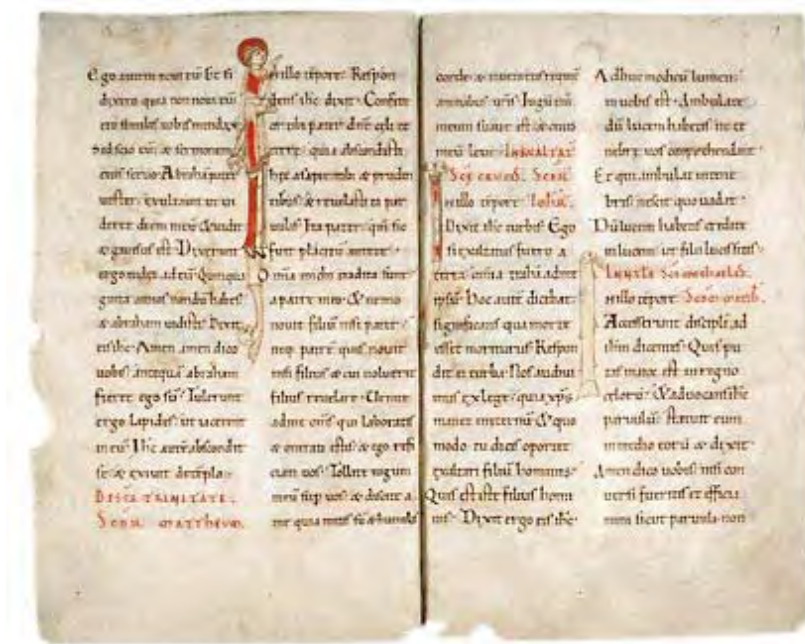 Ego autem noui eū Et si
dixero quia non noui eū
ero similis uobis mendax
sed scio eū & sermonem
eius seruo Abraham pater
uester exultauit ut ui
deret diem meū & uidit
& gauisus est Dixerunt
ergo iudei ad eū Quinqua
ginta annos nondū habes
& abraham uidisti Dixit
eis ihc Amen amen dico
uobis antequā abraham
fieret ego sū Tulerunt
ergo lapides ut iacerent
in eū Ihc autē abscondit
se & exiuit de templo
DESCA TRINITATE
SCDM MATTHEVM
In illo tēpore Respon
dens ihc dixit Confite
or tibi pater dnē celi et
terre quia abscondisti
hec a sapientibus & pruden
tibus & reuelasti ea par
uulis Ita pater qm sic
fuit placitū ante te
Omnia michi tradita sunt
a patre meo & nemo
nouit filiū nisi pater
neq patrē quis nouit
nisi filius & cui uoluerit
filius reuelare Uenite
ad me oms qui laboratis
& onerati estis & ego refi
ciam uos Tollite iugum
meū sup uos & discite a
me quia mitis sū & humilis
corde & inuenietis requiē
animabus uris Iugū enī
meum suaue est & onus
meū leue IN EXALTAT
SCE CRUCIS SCDM
In illo tēpore IOHM
Dixit ihc turbis Ego
si exaltatus fuero a
terra omia traham ad me
ipsū Hoc autē dicebat
significans qua morte
esset moriturus Respon
dit ei turba Nos audiui
mus ex lege quia xps
manet in eternū & quo
modo tu dicis oportet
exaltari filiū hominis
Quis est iste filius homi
nis Dixit ergo eis ihc
Adhuc modicū lumen
in uobis est Ambulate
dū lucem habetis ne te
nebre uos comprehendant
Et qui ambulat in tene
bris nescit quo uadat
Dū lucem habetis credite
in lucem ut filii lucis sitis
IN NATL SCI MICHAELIS
In illo tēpore SCDM MATTH
Accesserunt discipli ad
ihm dicentes Quis pu
tas maior est in regno
celorū & aduocans ihc
paruulū statuit eum
in medio eorū & dixit
Amen dico uobis nisi con
uersi fueritis et effici
mini sicut paruuli non